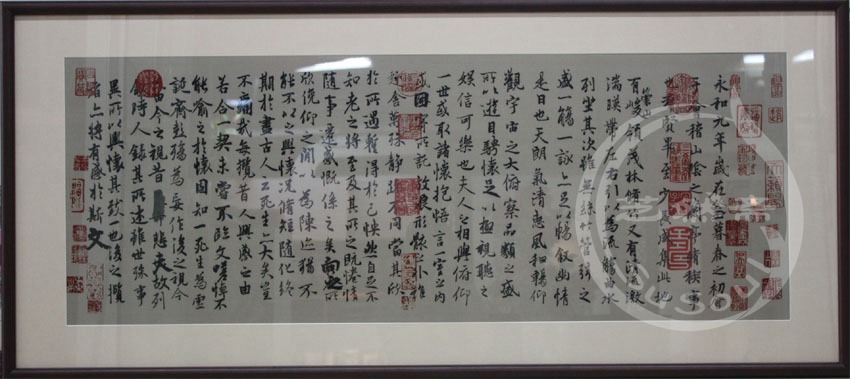 永和九年歲在癸丑暮春之初
于會稽山陰之蘭亭脩稧事
也群賢畢至少長咸集此地
有崇山峻領茂林脩竹又有清流激
湍暎帶左右引以為流觴曲水
列坐其次雖無絲竹管弦之
盛一觴一詠亦足以暢敘幽情
是日也天朗氣清惠風和暢仰
觀宇宙之大俯察品類之盛
所以遊目騁懷足以極視聽之
娛信可樂也夫人之相與俯仰
一世或取諸懷抱悟言一室之內
或因寄所託放浪形骸之外雖
趣舍萬殊靜躁不同當其欣
於所遇蹔得於己怏然自足不
知老之將至及其所之既惓情
隨事遷感慨係之矣向之所
欣俛仰之閒以為陳迹猶不
能不以之興懷況脩短隨化終
期於盡古人云死生亦大矣豈
不痛哉每攬昔人興感之由
若合一契未嘗不臨文嗟悼不
能喻之於懷固知一死生為虛
誕齊彭殤為妄作後之視今
亦由今之視昔悲夫故列
敘時人錄其所述雖世殊事
異所以興懷其致一也後之攬
者亦將有感於斯文